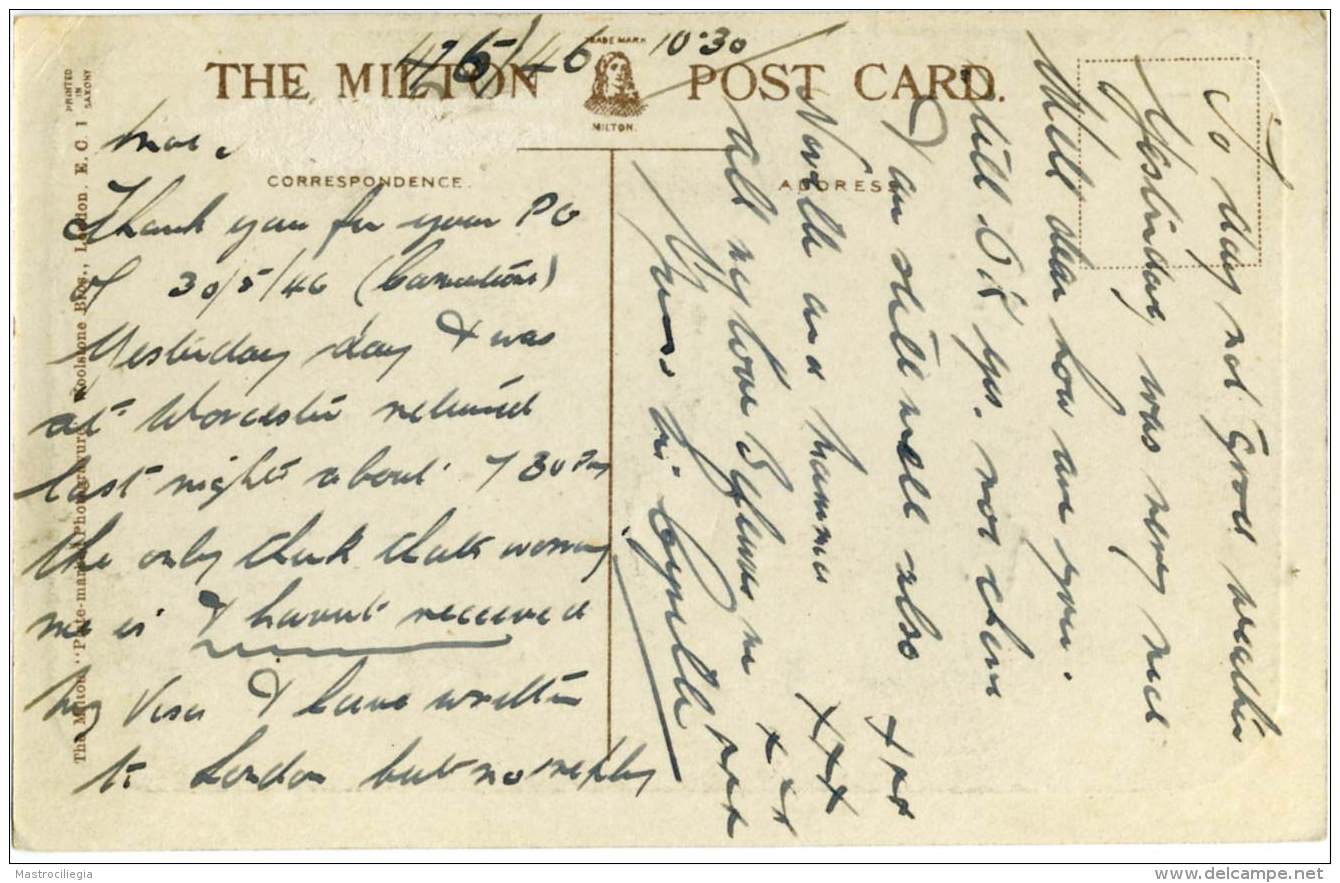 4/6/46 10.30
THE MILTON POST CARD.
TRADE MARK
MILTON.
CORRESPONDENCE.
ADDRESS
PRINTED IN SAXONY
The Milton "Plate-marked Photogravure" Woolstone Bros., London. E. C. 1
Thank you for your PC
of 30/5/46 (Carnations)
Yesterday day I was
at Worcester returned
last night about 7 30 Pm
the only think thats worring
me is I havent received
my Visa I have written
to London but no reply
To day not Good weather
Yesterday was very nice
Well dear how are you.
still O.K yes.
I am still well also
Norolle and mamma
all my love
Yours
xxx
xxx
xxx
xxx
Mastrociliegia
www.delcampe.net